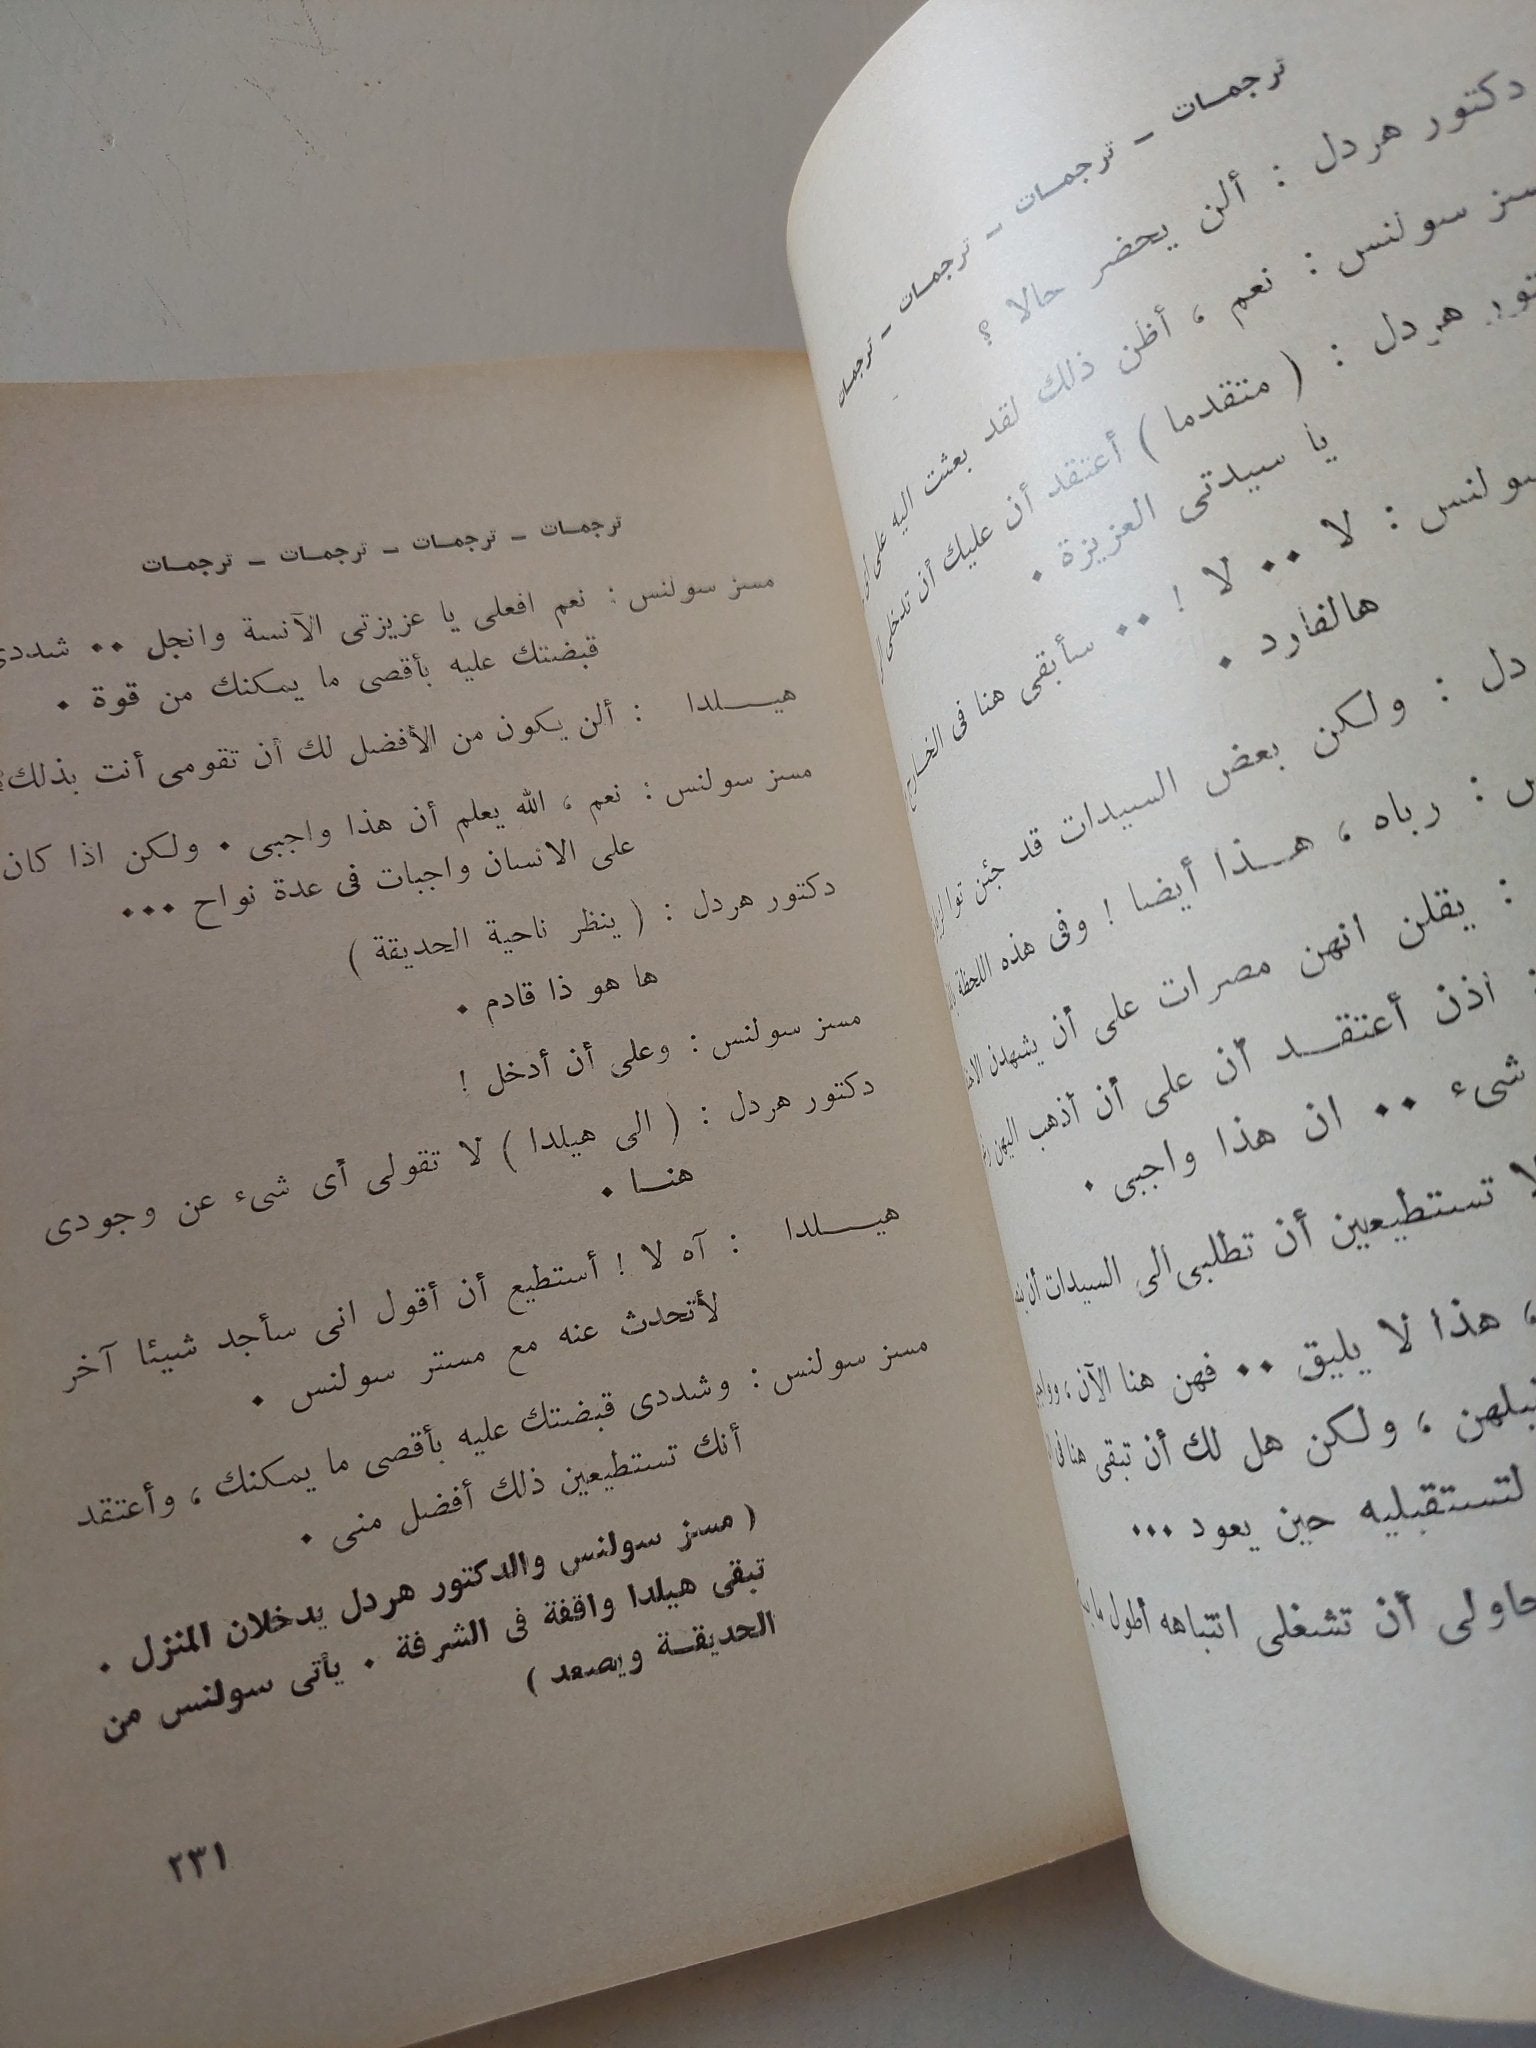 ترجمات ــ ترجمات ــ ترجمات ــ ترجمات
دكتور هردل : ألن يحضر حالا ؟
سولنس : نعم ، أظن ذلك لقد بعثت اليه على
هردل : ( متقدما ) أعتقد أن عليك أن تدخلى
يا سيدتى العزيزة ٠
سولنس : لا ٠٠ لا ! ٠٠ سأبقى هنا فى الخارج
هالفارد ٠
دل : ولكن بعض السيدات قد جئن توا
س : رباه ، هــذا أيضا ! وفى هذه اللحظة
: يقلن انهن مصرات على أن يشهدن
: اذن أعتقــد أن على أن أذهب اليهن
شىء ٠٠ ان هذا واجبى ٠
لا تستطيعين أن تطلبى الى السيدات أن
، هذا لا يليق ٠٠ فهن هنا الآن ،
، ولكن هل لك أن تبقى هنا فى
لتستقبليه حين يعود ٠٠٠
حاولى أن تشغلى انتباهه أطول ما
ترجمات ــ ترجمات ــ ترجمات ــ ترجمات
مسز سولنس : نعم افعلى يا عزيزتى الآنسة وانجل ٠٠ شددى
قبضتك عليه بأقصى ما يمكنك من قوة ٠
هيــــلدا : ألن يكون من الأفضل لك أن تقومى أنت بذلك؟
مسز سولنس : نعم ، الله يعلم أن هذا واجبى ٠ ولكن اذا كان
على الانسان واجبات فى عدة نواح ٠٠٠
دكتور هردل : ( ينظر ناحية الحديقة )
ها هو ذا قادم ٠
مسز سولنس : وعلى أن أدخل !
دكتور هردل : ( الى هيلدا ) لا تقولى أى شىء عن وجودى
هنــا ٠
هيــــلدا : آه لا ! أستطيع أن أقول انى سأجد شيئا آخر
لأتحدث عنه مع مستر سولنس ٠
مسز سولنس : وشددى قبضتك عليه بأقصى ما يمكنك ، وأعتقد
أنك تستطيعين ذلك أفضل منى ٠
( مسز سولنس والدكتور هردل يدخلان المنزل ٠
تبقى هيلدا واقفة فى الشرفة ٠ يأتى سولنس من
الحديقــة ويصعد )
٢٣١